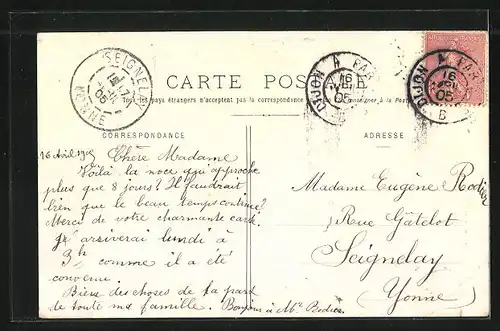 SEIGNELAY
YONNE
DIJON A PAR
16
05
DIJON A PAR
16
05
B
CARTE POSTALE
Tous les pays étrangers n'acceptent pas la correspondance au
CORRESPONDANCE
ADRESSE
16 Avril 1905 Chère Madame
Voilà la noce qui approche
plus que 8 jours ? Il faudrait
bien que le beau temps continue ?
Merci de votre charmante carte.
arriverai lundi à
3h comme il a été
convenu.
Bien des choses de la part
de toute ma famille. Bonjour à Mr Rodier
Madame Eugène Rodier
Rue Gâtelot
Seignelay
Yonne